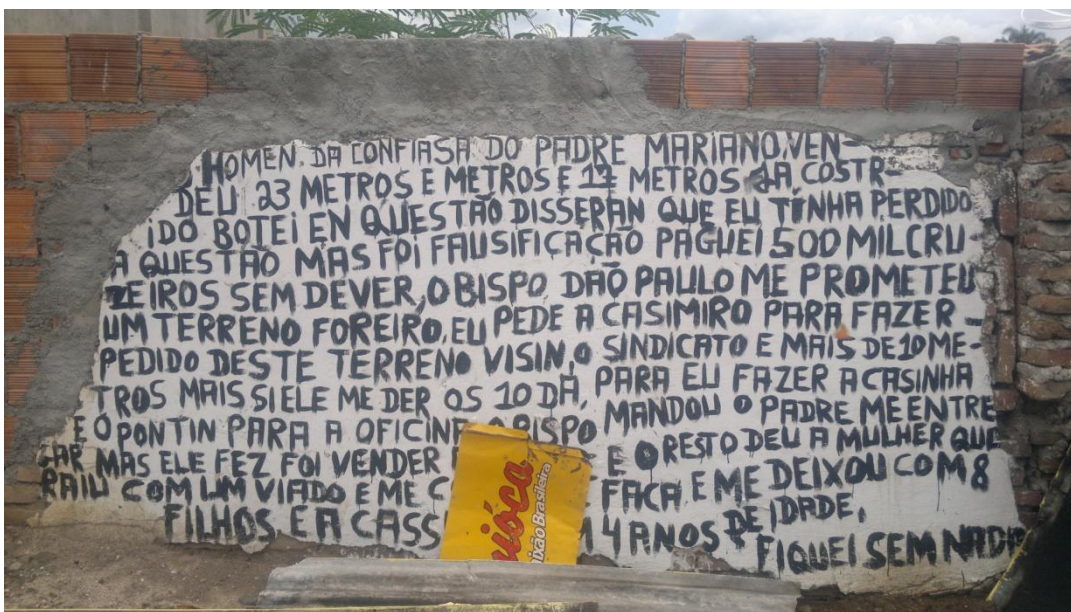 HOMEN. DA CONFIASA DO PADRE MARIANO, VEN-
DEU 23 METROS E METROS E 17 METROS JA COSTR-
IDO BOTEI EN QUESTÃO DISSERAN QUE EU TINHA PERDIDO
A QUESTÃO MAS FOI FAUSIFICAÇÃO PAGUEI 500 MIL CRU-
ZEIROS SEM DEVER, O BISPO DÃO PAULO ME PROMETEU
UM TERRENO FOREIRO, EU PEDE A CASIMIRO PARA FAZER -
PEDIDO DESTE TERRENO VISIN, O SINDICATO E MAIS DE 10 ME-
TROS MAIS SI ELE ME DER OS 10 DA, PARA EU FAZER A CASINHA
E O PONTIN PARA A OFICINE BISPO MANDOU O PADRE ME ENTRE
GAR MAS ELE FEZ FOI VENDER E O RESTO DEU A MULHER QUE
RAIU COM UM VIADO E ME C FACA, E ME DEIXOU COM 8
FILHOS, E A CASS 4 ANOS DE IDADE,
FIQUEI SEM NADA
ióca
ixão Brasileira